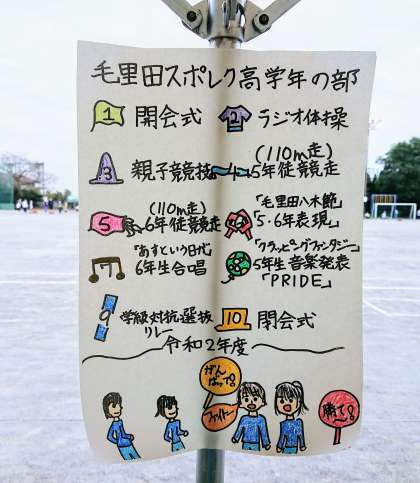 毛里田スポレク高学年の部
1 開会式
2 ラジオ体操
3 親子競技
4 (110m走)
5年徒競走
5 (110m走)
6年徒競走
6 「毛里田八木節」
5・6年表現
7 「あすという日が」
6年生合唱
8 「クラッピングファンタジー」
5年生音楽発表
「PRIDE」
9 学級対抗選抜
リレー
10 閉会式
令和2年度
がん
ばって!
ファイトー
勝てー!